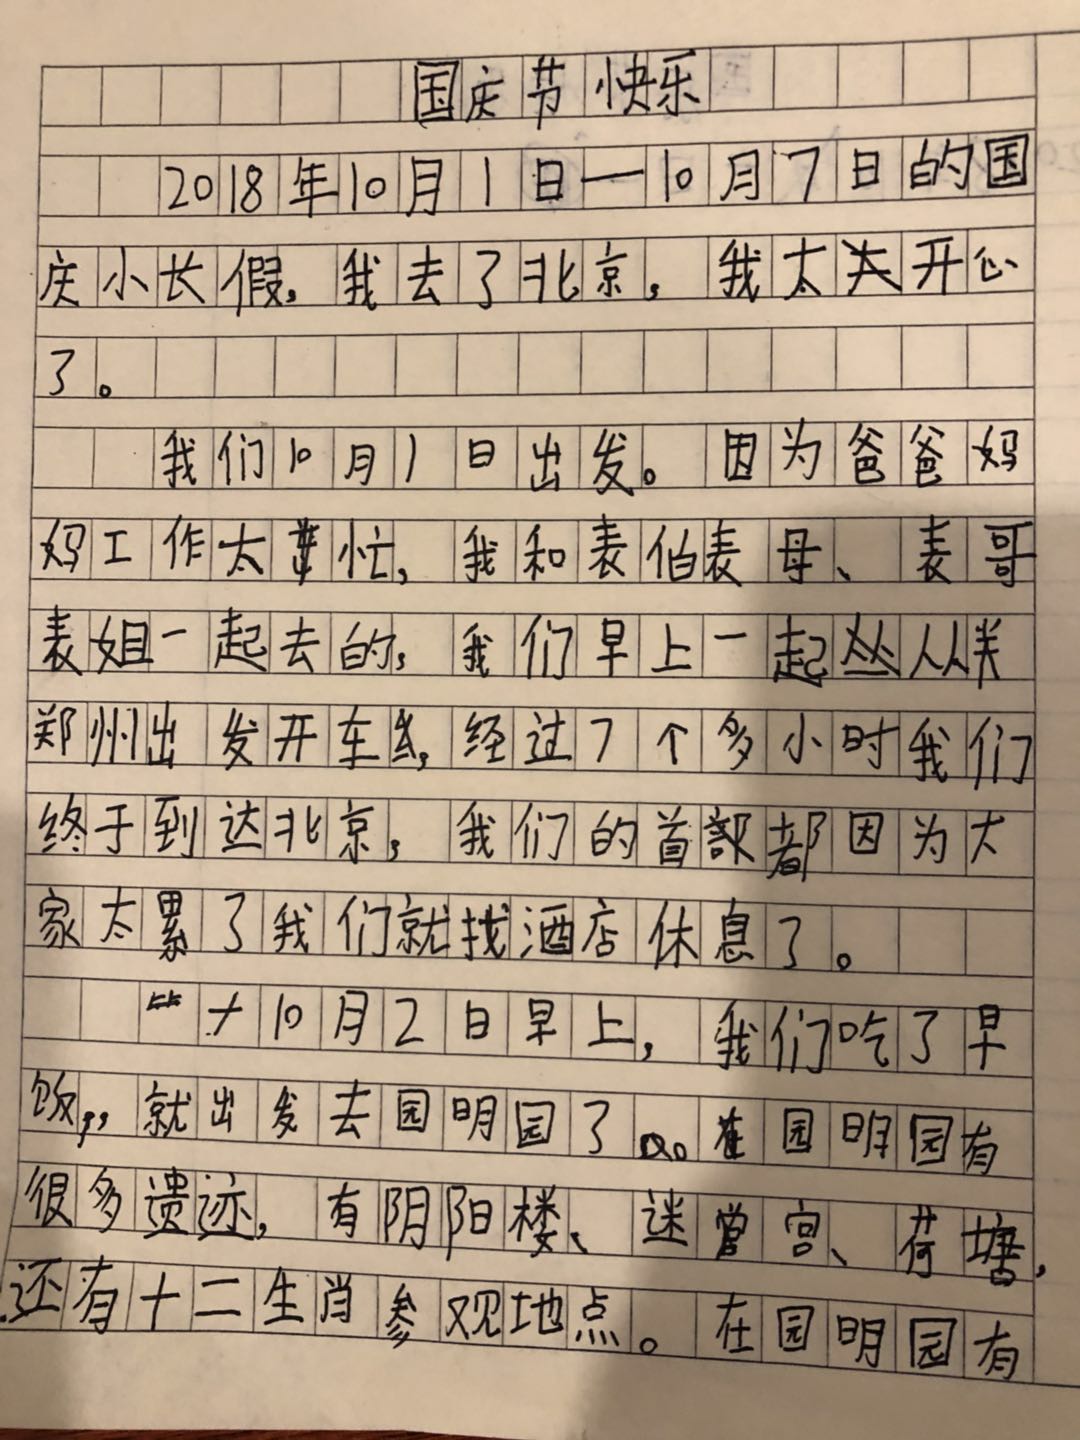 国庆节快乐
2018年10月1日一10月7日的国
庆小长假,我去了北京,我太开心
了。
我们10月1日出发。因为爸爸妈
妈工作太忙,我和表伯表母、表哥
表姐一起去的,我们早上一起从
郑州出发开车去,经过7个多小时我们
终于到达北京,我们的首都因为大
家太累了我们就找酒店休息了。
10月2日早上,我们吃了早
饭,就出发去园明园了。在园明园有
很多遗迹,有阴阳楼、迷宫、荷塘,
还有十二生肖参观地点。在园明园有